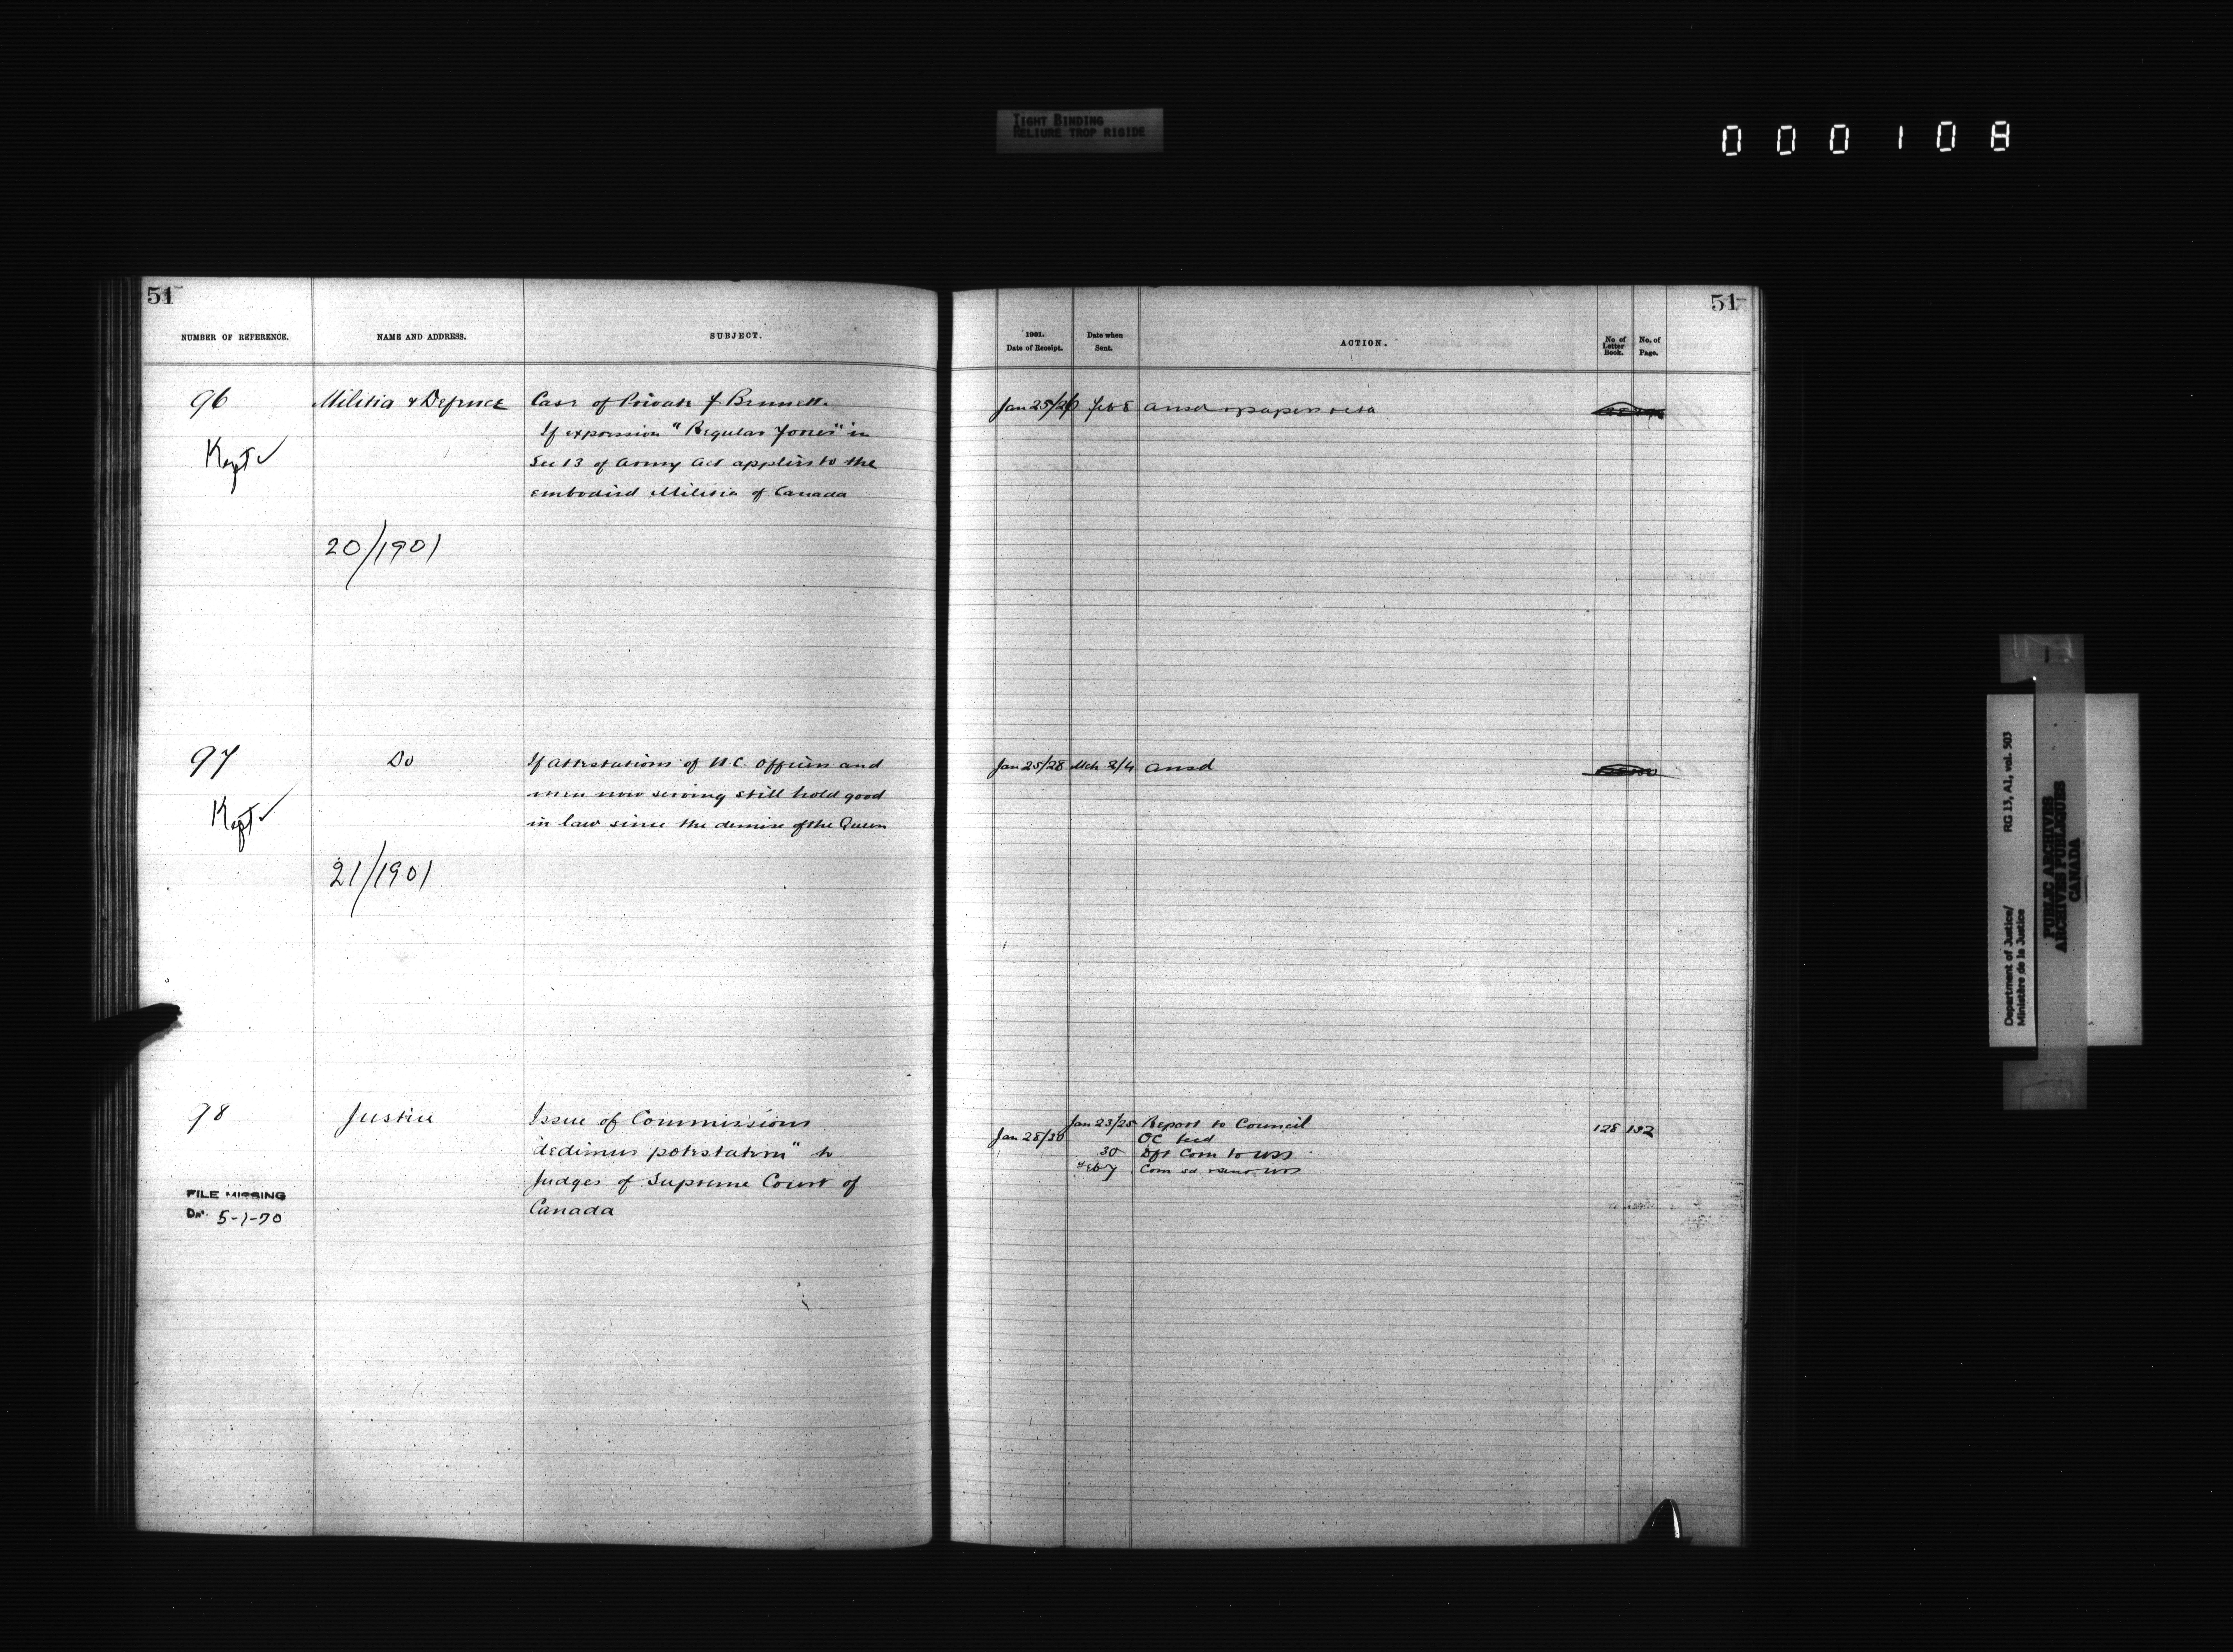 TIGHT BINDING
RELIURE TROP RIGIDE
000108
51
NUMBER OF REFERENCE.
NAME AND ADDRESS.
SUBJECT.
96
Militia & Defence
Case of Private J Brunett.
If expression "Regular Forces" in
Sec 13 of Army Act applies to the
embodied Militia of Canada
Kept ✓
20/1901
97
Do
If attestations of N.C. Officers and
men now serving still hold good
in law since the demise of the Queen
Kept ✓
21/1901
98
Justice
Issue of Commissions
"dedimus potestatem" to
Judges of Supreme Court of
Canada
FILE MISSING
5-1-70
51
1901.
Date of Receipt.
Date when
Sent.
ACTION.
No of
Letter
Book.
No. of
Page.
Jan 25/26 Feb 8 ansd & papers retd
Jan 25/28 Mch 2/4 ansd
Jan 23/25 Report to Council 128 132
Jan 28/30 OC recd
30 Dft Com to USS
Feb 7 Com
Department of Justice/
Ministère de la Justice
RG 13, A1, vol. 503
PUBLIC ARCHIVES
ARCHIVES PUBLIQUES
CANADA